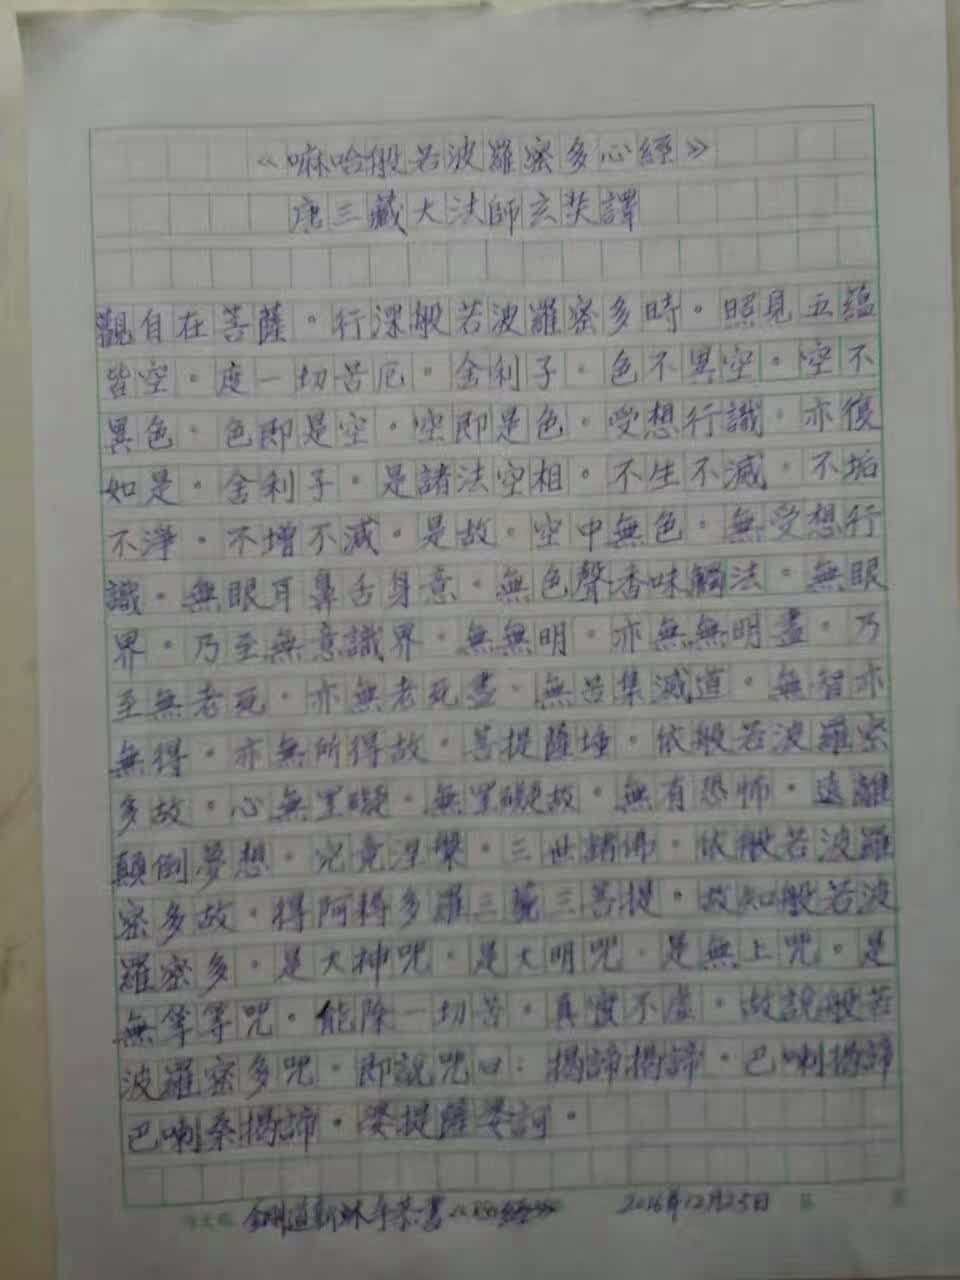 《嘛哈般若波羅密多心經》
唐三藏大法師玄奘譯
觀自在菩薩。行深般若波羅密多時。照見五蘊
皆空。度一切苦厄。舍利子。色不異空。空不
異色。色即是空。空即是色。受想行識。亦復
如是。舍利子。是諸法空相。不生不滅。不垢
不淨。不增不減。是故。空中無色。無受想行
識。無眼耳鼻舌身意。無色聲香味觸法。無眼
界。乃至無意識界。無無明。亦無無明盡。乃
至無老死。亦無老死盡。無苦集滅道。無智亦
無得。亦無所得故。菩提薩埵。依般若波羅密
多故。心無罣礙。無罣礙故。無有恐怖。遠離
顛倒夢想。究竟涅槃。三世諸佛。依般若波羅
密多故。得阿耨多羅三藐三菩提。故知般若波
羅密多。是大神咒。是大明咒。是無上咒。是
無等等咒。能除一切苦。真實不虛。故説般若
波羅密多咒。即説咒曰：揭諦揭諦。巴喇揭諦
巴喇桑揭諦。婆提薩婆訶。
金剛道 2016年12月25日